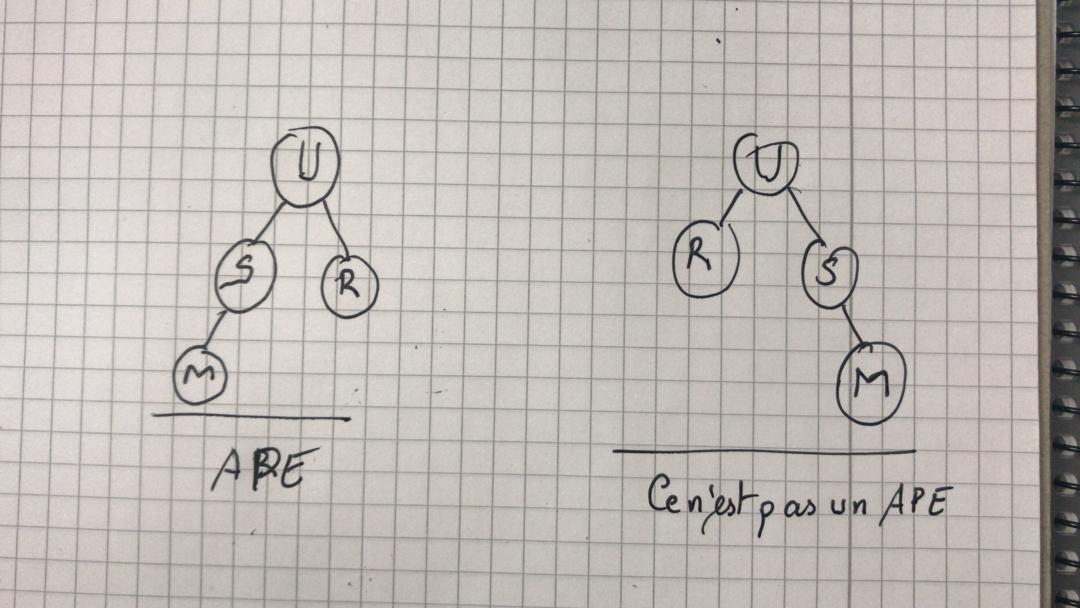 U
S R
M
APE
U
R S
M
Ce n'est pas un APE